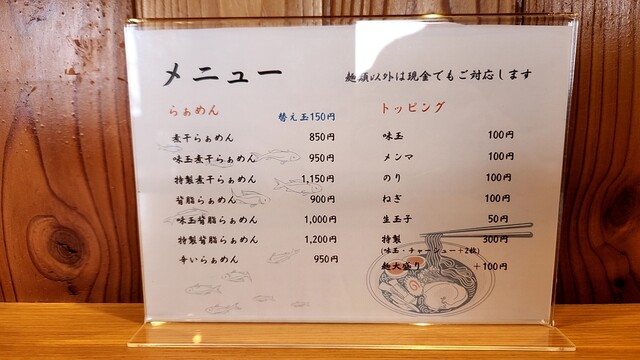 メニュー
麺類以外は現金でもご対応します
らぁめん
替え玉150円
煮干らぁめん 850円
味玉煮干らぁめん 950円
特製煮干らぁめん 1,150円
背脂らぁめん 900円
味玉背脂らぁめん 1,000円
特製背脂らぁめん 1,200円
辛いらぁめん 950円
トッピング
味玉 100円
メンマ 100円
のり 100円
ねぎ 100円
生玉子 50円
特製 300円
(味玉・チャーシュー+2枚)
麺大盛り +100円